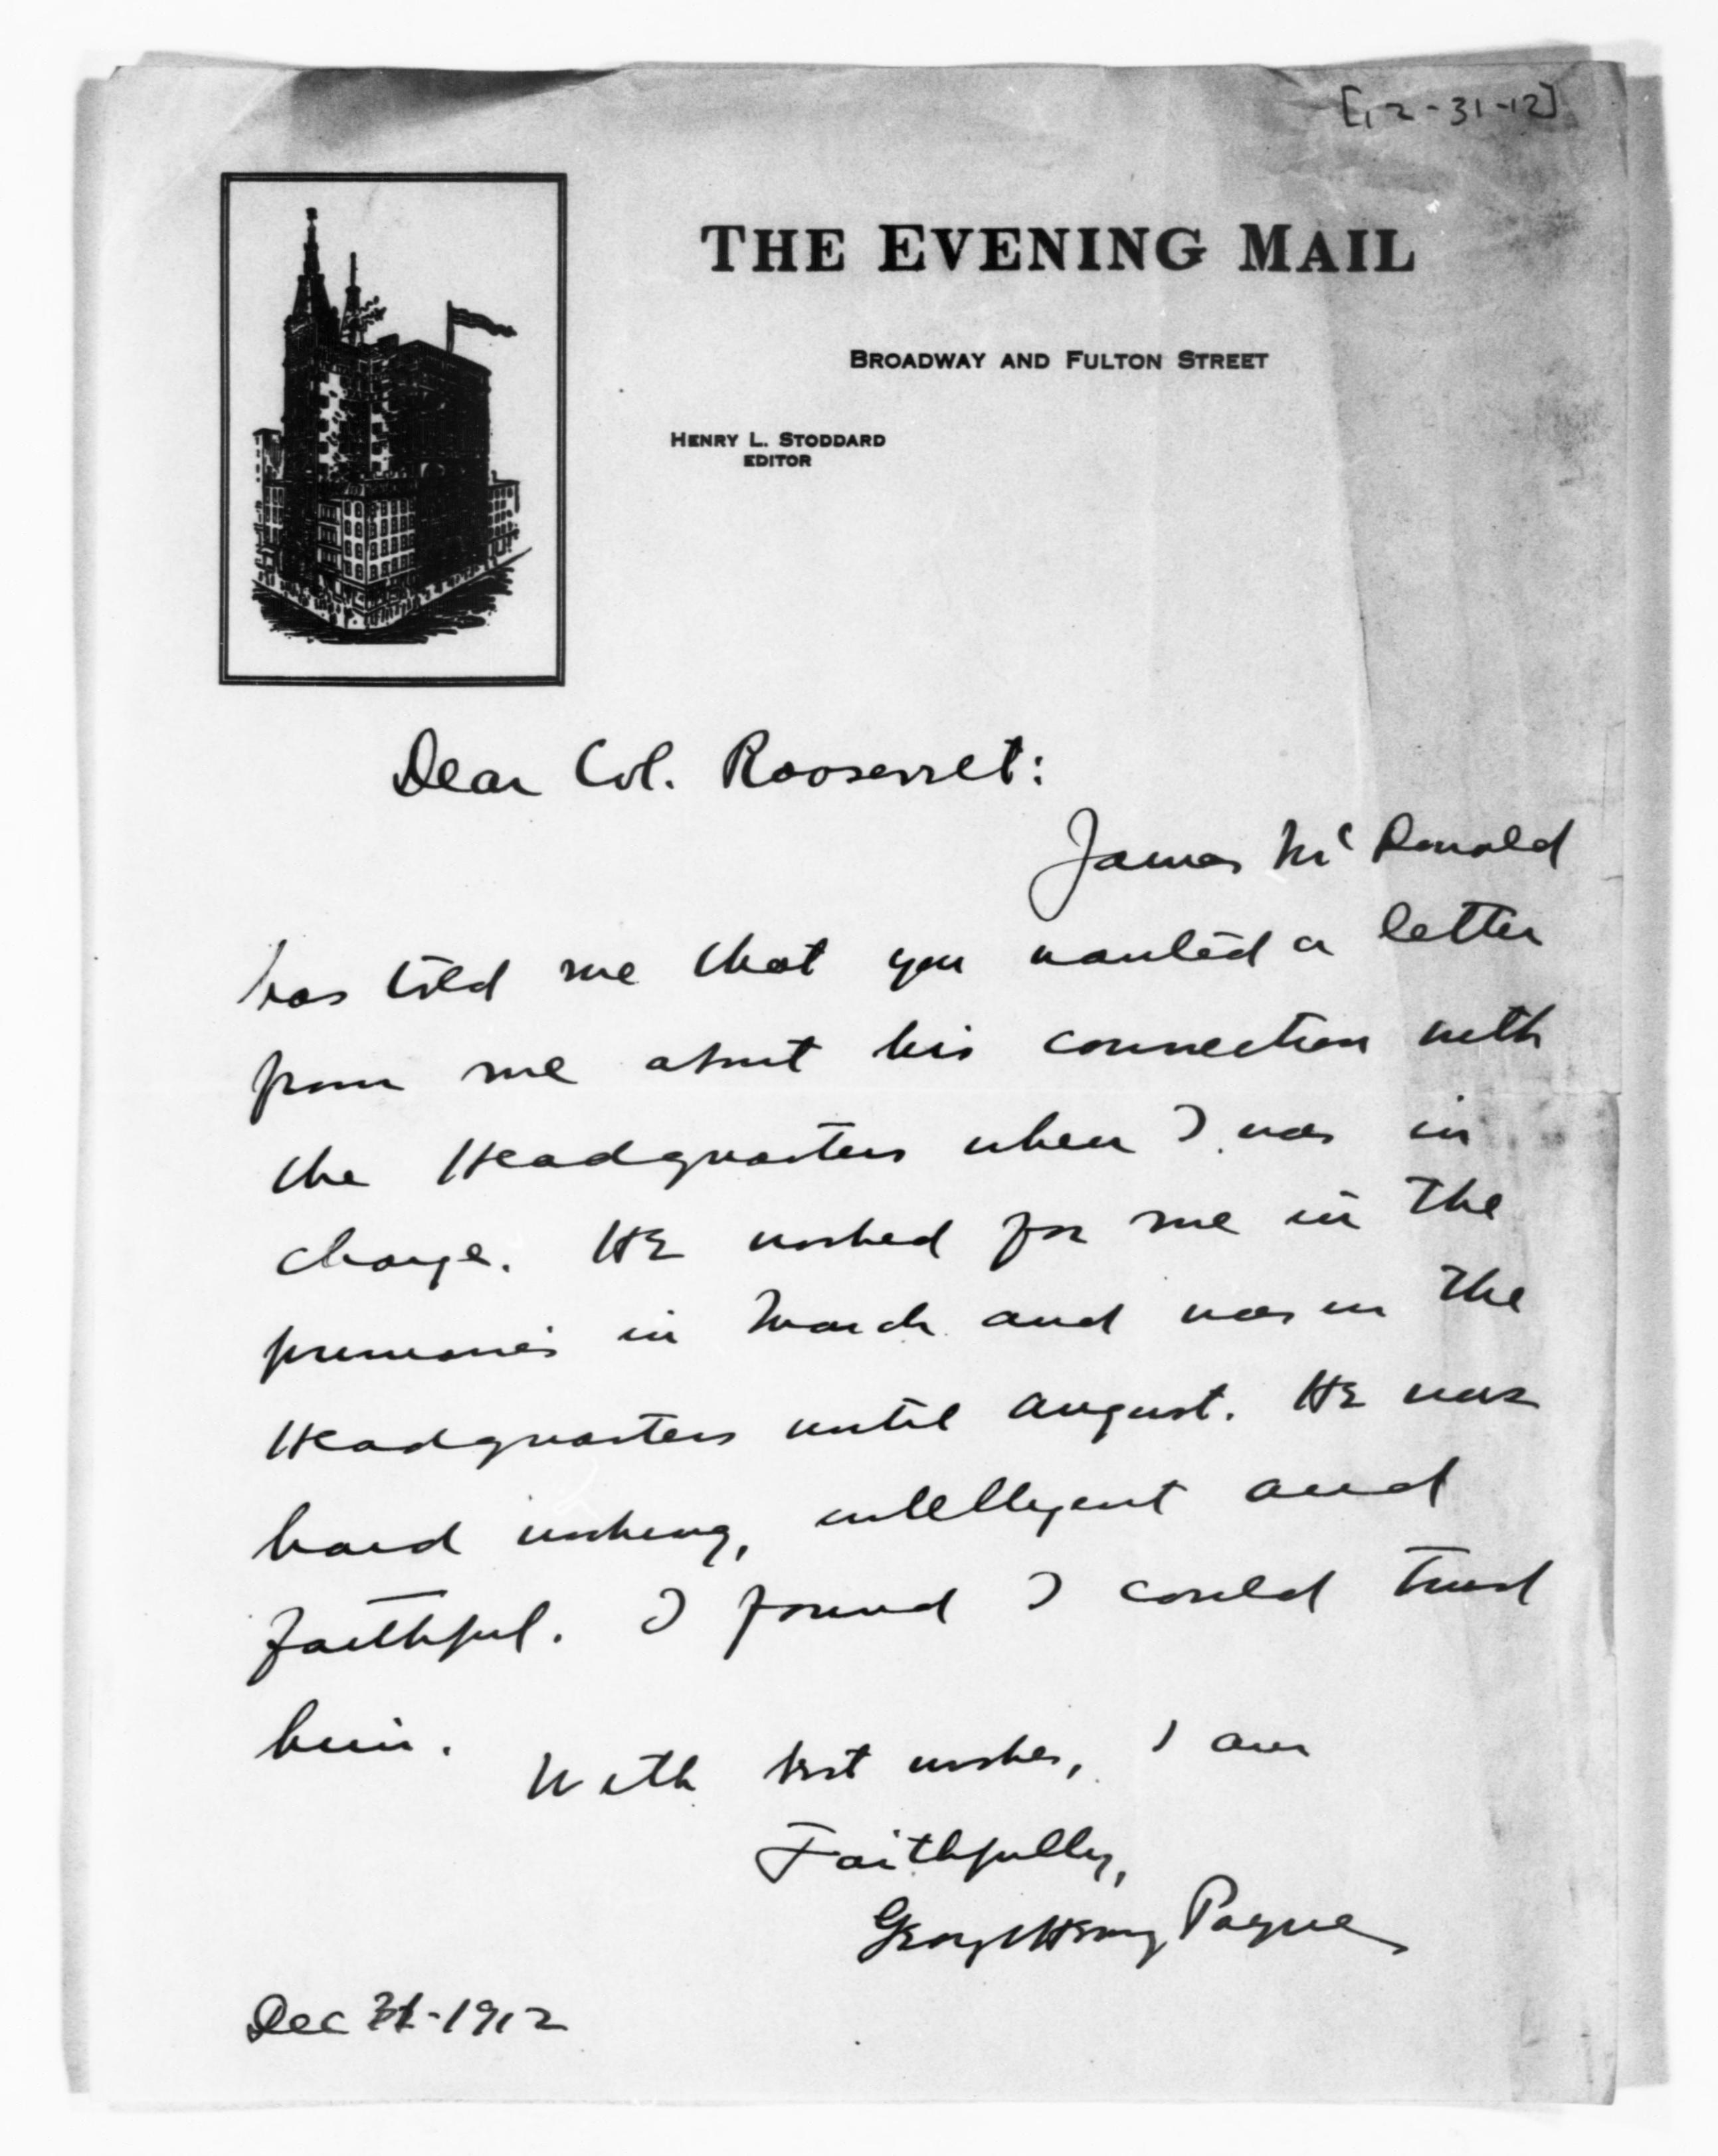 [12-31-12]
THE EVENING MAIL
BROADWAY AND FULTON STREET
HENRY L. STODDARD
EDITOR
Dear Col. Roosevelt:
James McDonald
has told me that you wanted a letter
from me about his connection with
the Headquarters when I was in
charge. He worked for me in the
primaries in March and was in the
Headquarters until August. He was
hard working, intelligent and
faithful. I found I could trust
him.
With best wishes, I am
Faithfully,
George Henry Payne
Dec 31-1912